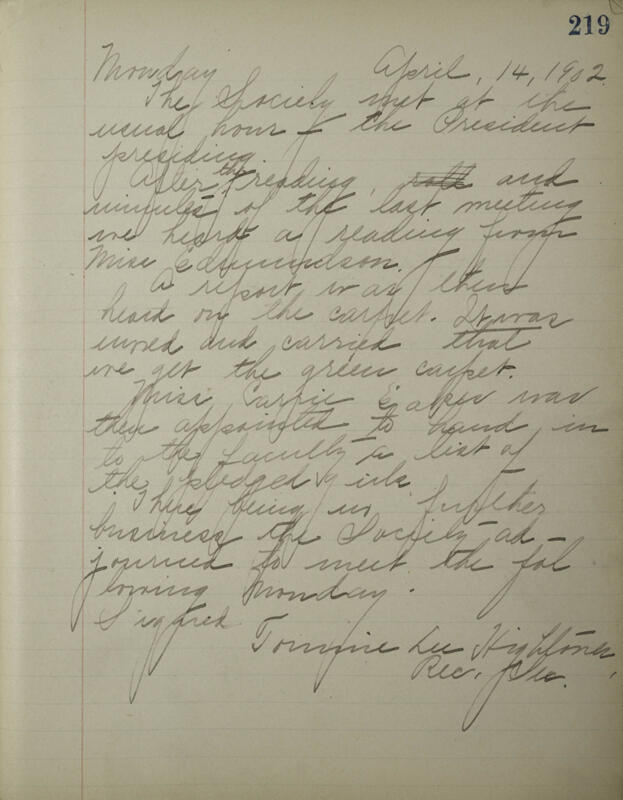 219
Monday April, 14, 1902
The Society met at the
usual hour – the President
presiding.
After the reading, roll and
minutes of the last meeting
we heard a reading from
Miss Edmundson.
A report was then
heard on the carpet. It was
moved and carried that
we get the green carpet.
Miss Carrie was
then appointed to hand in
to the faculty a list of
the pledged girls
There being no further
business the Society ad-
journed to meet the fol
lowing Monday.
Signed
Tommie Lee Hightower,
Rec. Sec.